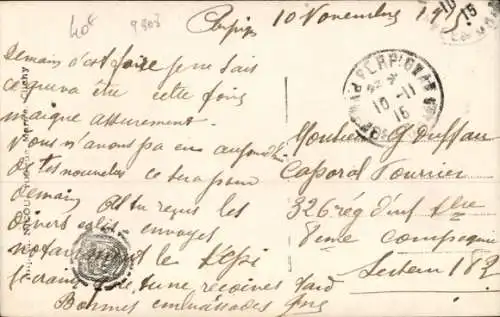 40f 9303
10 Novembre 1915
Demain c'est foire je ne sais
ce que va être cette fois
maigre assurement.
Vous n'avons pas eu aujourd'hui
de tes nouvelles ce sera pour
demain. As tu reçus les
divers colis envoyés
notamment le Képi
je crains que tu ne reçoives tard
Bonnes embrassades
PERPIGNAN
10-11
15
Monsieur G Duffau
Caporal Fourrier
326 rég d'inf
8eme Compagnie
Secteur 182